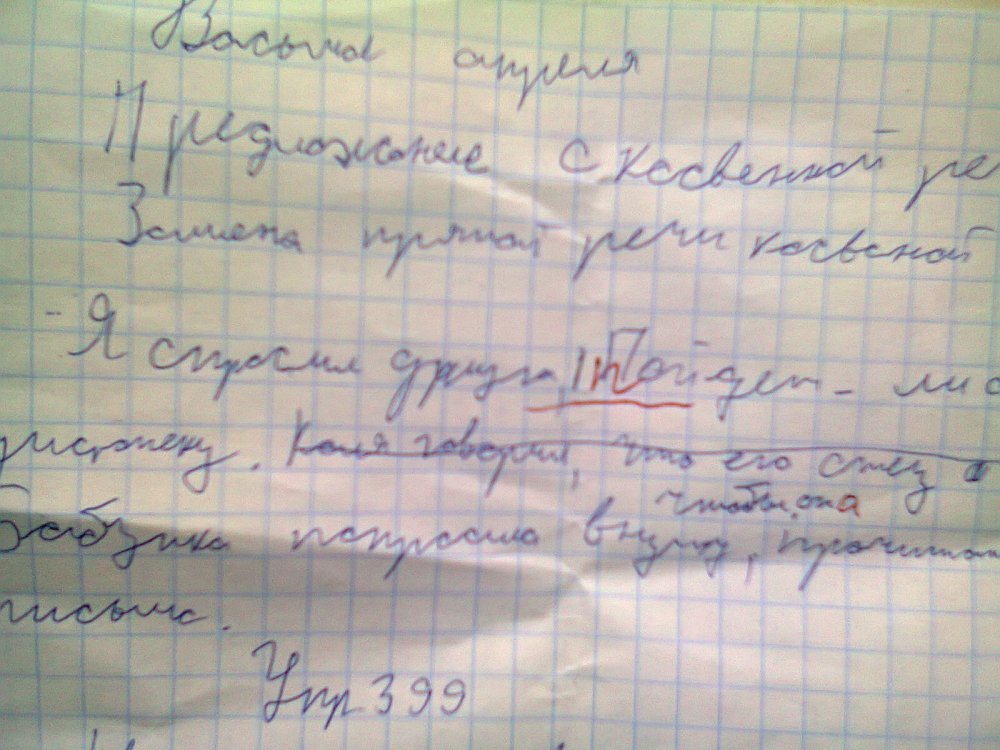 Восьмое апреля
Предложение с косвенной ре
Замена прямой речи косвеной
- Я спросил друга, Пойдет - ли о
Коля говорил, что его отец
чтобы она
Бабушка попросила внучку, прочитат
письмо.
Упр 399